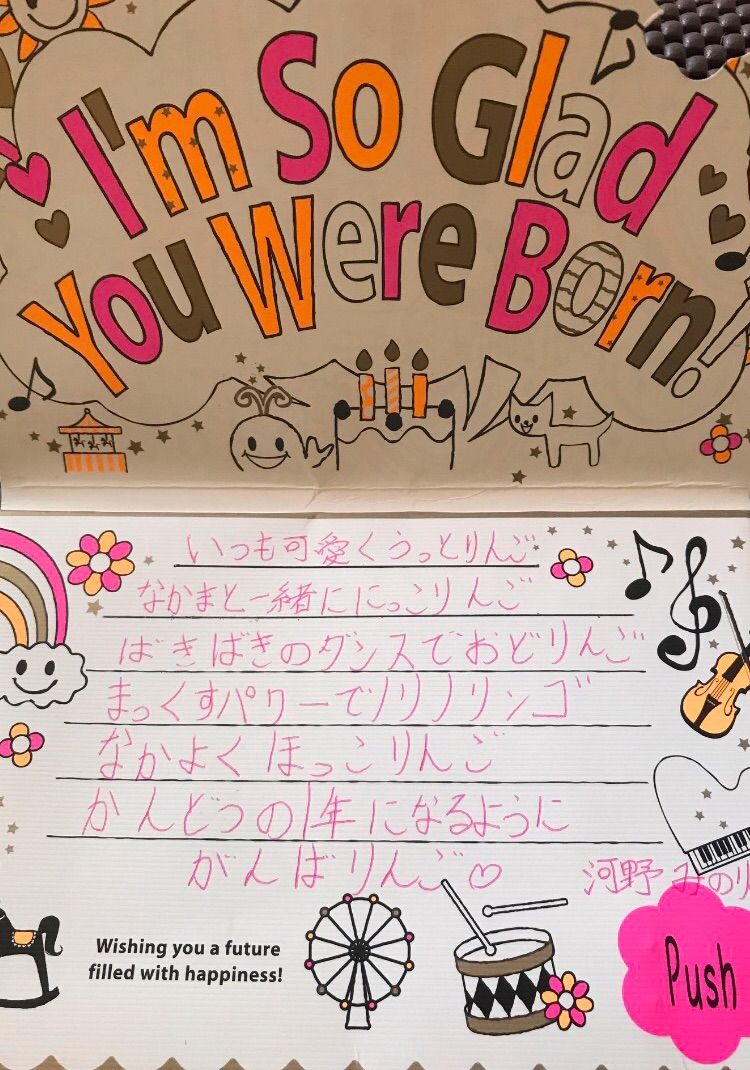 I'm So Glad
You Were Born!
いつも可愛くうっとりんご
なかまと一緒ににっこりんご
ばきばきのダンスでおどりんご
まっくすパワーでノリノリンゴ
なかよくほっこりんご
かんどうの1年になるように
がんばりんご♡
河野みのり
Wishing you a future
filled with happiness!
Push